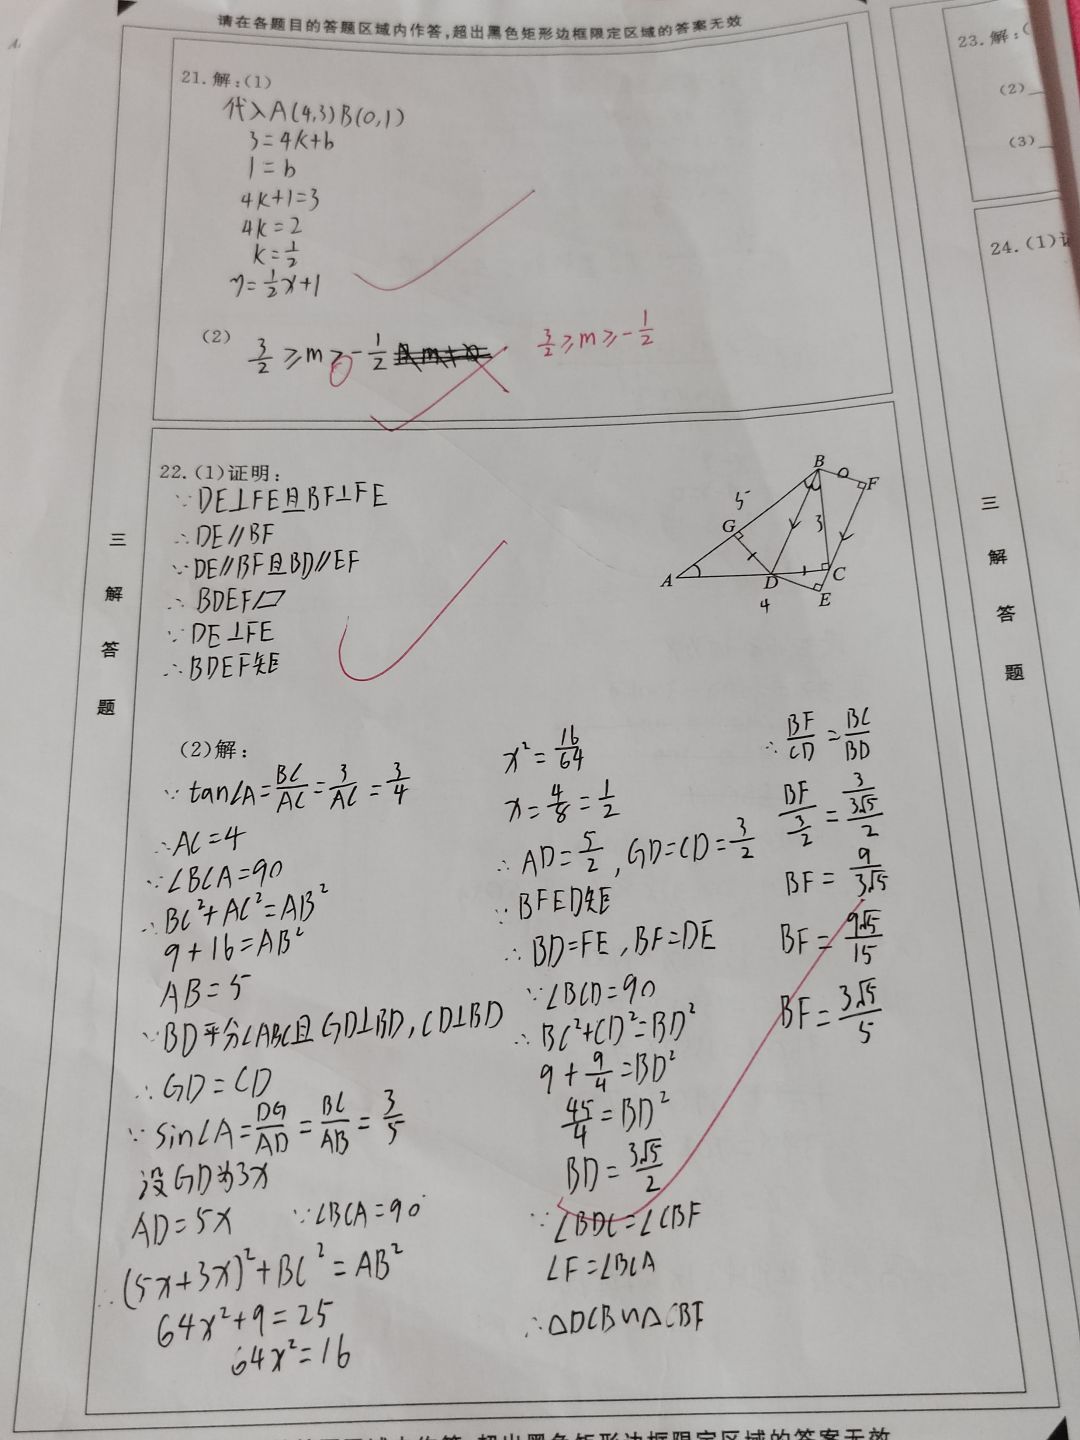 请在各题目的答题区域内作答,超出黑色矩形边框限定区域的答案无效
21.解:(1)
代入A(4,3)B(0,1)
3=4k+b
1=b
4k+1=3
4k=2
k=1/2
y=1/2x+1
(2)
3/2≥m≥-1/2
3/2≥m≥-1/2
22.(1)证明:
∵DE⊥FE且BF⊥FE
∴DE∥BF
∵DE∥BF且BD∥EF
∴BDEF▱
∵DE⊥FE
∴BDEF矩
B
F
5
G
3
A
D
C
4
E
(2)解:
∵tan∠A=BC/AC=3/AC=3/4
∴AC=4
∵∠BCA=90
∴BC²+AC²=AB²
9+16=AB²
AB=5
∵BD平分∠ABC且GD⊥BD,CD⊥BD
∴GD=CD
∵sin∠A=DG/AD=BC/AB=3/5
设GD为3x
AD=5x ∵∠BCA=90°
∴(5x+3x)²+BC²=AB²
64x²+9=25
64x²=16
x²=16/64
x=4/8=1/2
∴AD=5/2,GD=CD=3/2
∵BFED矩
∴BD=FE,BF=DE
∵∠BCD=90
∴BC²+CD²=BD²
9+9/4=BD²
45/4=BD²
BD=3√5/2
∵∠BDC=∠CBF
∠F=∠BCA
∴△DCB∽△CBF
∴BF/CD=BC/BD
BF/(3/2)=3/(3√5/2)
BF=9/3√5
BF=9√5/15
BF=3√5/5
三
解
答
题
23.解:(
(2)
(3)
24.(1)证
三
解
答
题
超出黑色矩形边框限定区域的答案无效